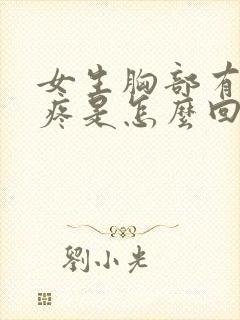 女生胸部有
疼是怎麼回
劉小光